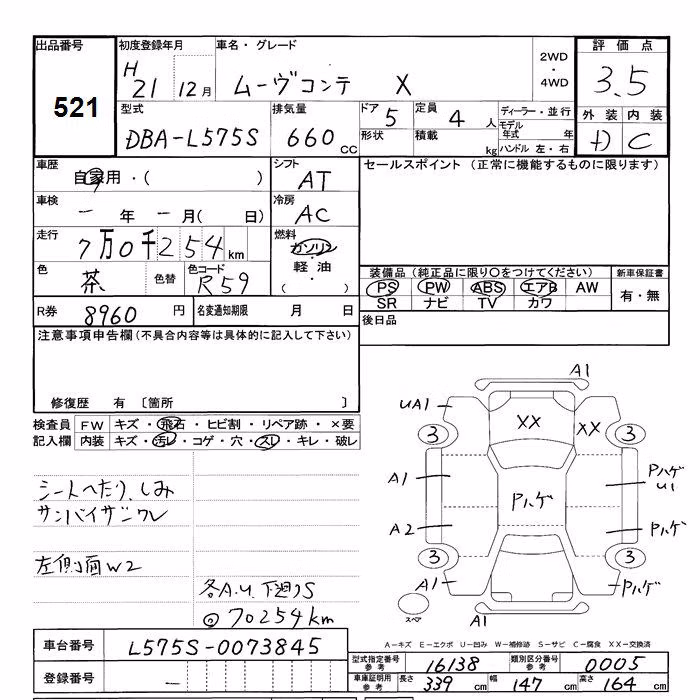 出品番号
521
初度登録年月
H 21 12 月
車名・グレード
ムーヴコンテ X
2WD
・
4WD
評価点
3.5
型式
DBA-L575S
排気量
660 CC
ドア 5
形状
定員 4 人
積載 kg
ディーラー・並行
モデル年式 年
ハンドル 左・右
外装 内装
D C
車歴
自家用・( )
シフト
AT
セールスポイント (正常に機能するものに限ります)
車検
一 年 一 月( 日)
冷房
AC
走行
7万0千254 km
燃料
ガソリン
・
軽油
・
( )
色
茶
色替
色コード
R59
装備品 (純正品に限り〇をつけてください)
PS PW ABS エアB AW
SR ナビ TV カワ
新車保証書
有・無
R券 8960 円
名変通知期限 月 日
後日品
注意事項申告欄 (不具合内容等は具体的に記入して下さい)
修復歴 有 〔箇所 〕
検査員 FW キズ・飛石・ヒビ割・リペア跡・×要
記入欄 内装 キズ・汚レ・コゲ・穴・スレ・キレ・破レ
シートへたり、しみ
サンバイザーワレ
左側面W2
各A.U.下廻りS
◎70254km
A1
UA1
XX XX
3 3
A1 Pハゲ U1
Pハゲ
A2 Pハゲ
3 3
A1 Pハゲ
スペア
A1
A-キズ E-エクボ U-凹み W-補修跡 S-サビ C-腐食 XX-交換済
車台番号 L575S-0073845
登録番号 一
型式指定番号 参考 16138 類別区分番号 参考 0005
車庫証明用 参考 長さ 339 cm 幅 147 cm 高さ 164 cm